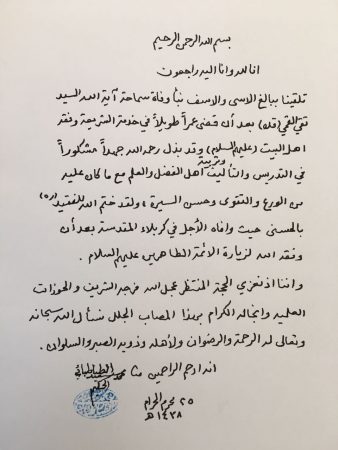 بسم الله الرحمن الرحيم
انا لله وانا اليه راجعون
تلقينا ببالغ الاسى والاسف نبأ وفاة سماحة آية الله السيد
تقي القمي (قده) بعد أن قضى عمراً طويلاً في خدمة الشريعة وفقه
اهل البيت (عليهم السلام) وقد بذل رحمه الله جهداً مشكوراً
في التدريس والتأليف وتربية اهل الفضل والعلم مع ما كان عليه
من الورع والتقوى وحسن السيرة، ولقد ختم الله للفقيد (ره)
بالحسنى حيث وافاه الأجل في كربلاء المقدسة بعد أن
وفقه الله لزيارة الائمة الطاهرين عليهم السلام .
واننا اذ نعزي الحجة المنتظر عجل الله فرجه الشريف والحوزات
العلمية وانجاله الكرام بهذا المصاب الجلل نسأل الله سبحانه
وتعالى له الرحمة والرضوان ولأهله وذويه الصبر والسلوان .
انه ارحم الراحمين محمد سعيد الطباطبائي
الحكيم
٢٥ محرم الحرام
١٤٣٨ هـ